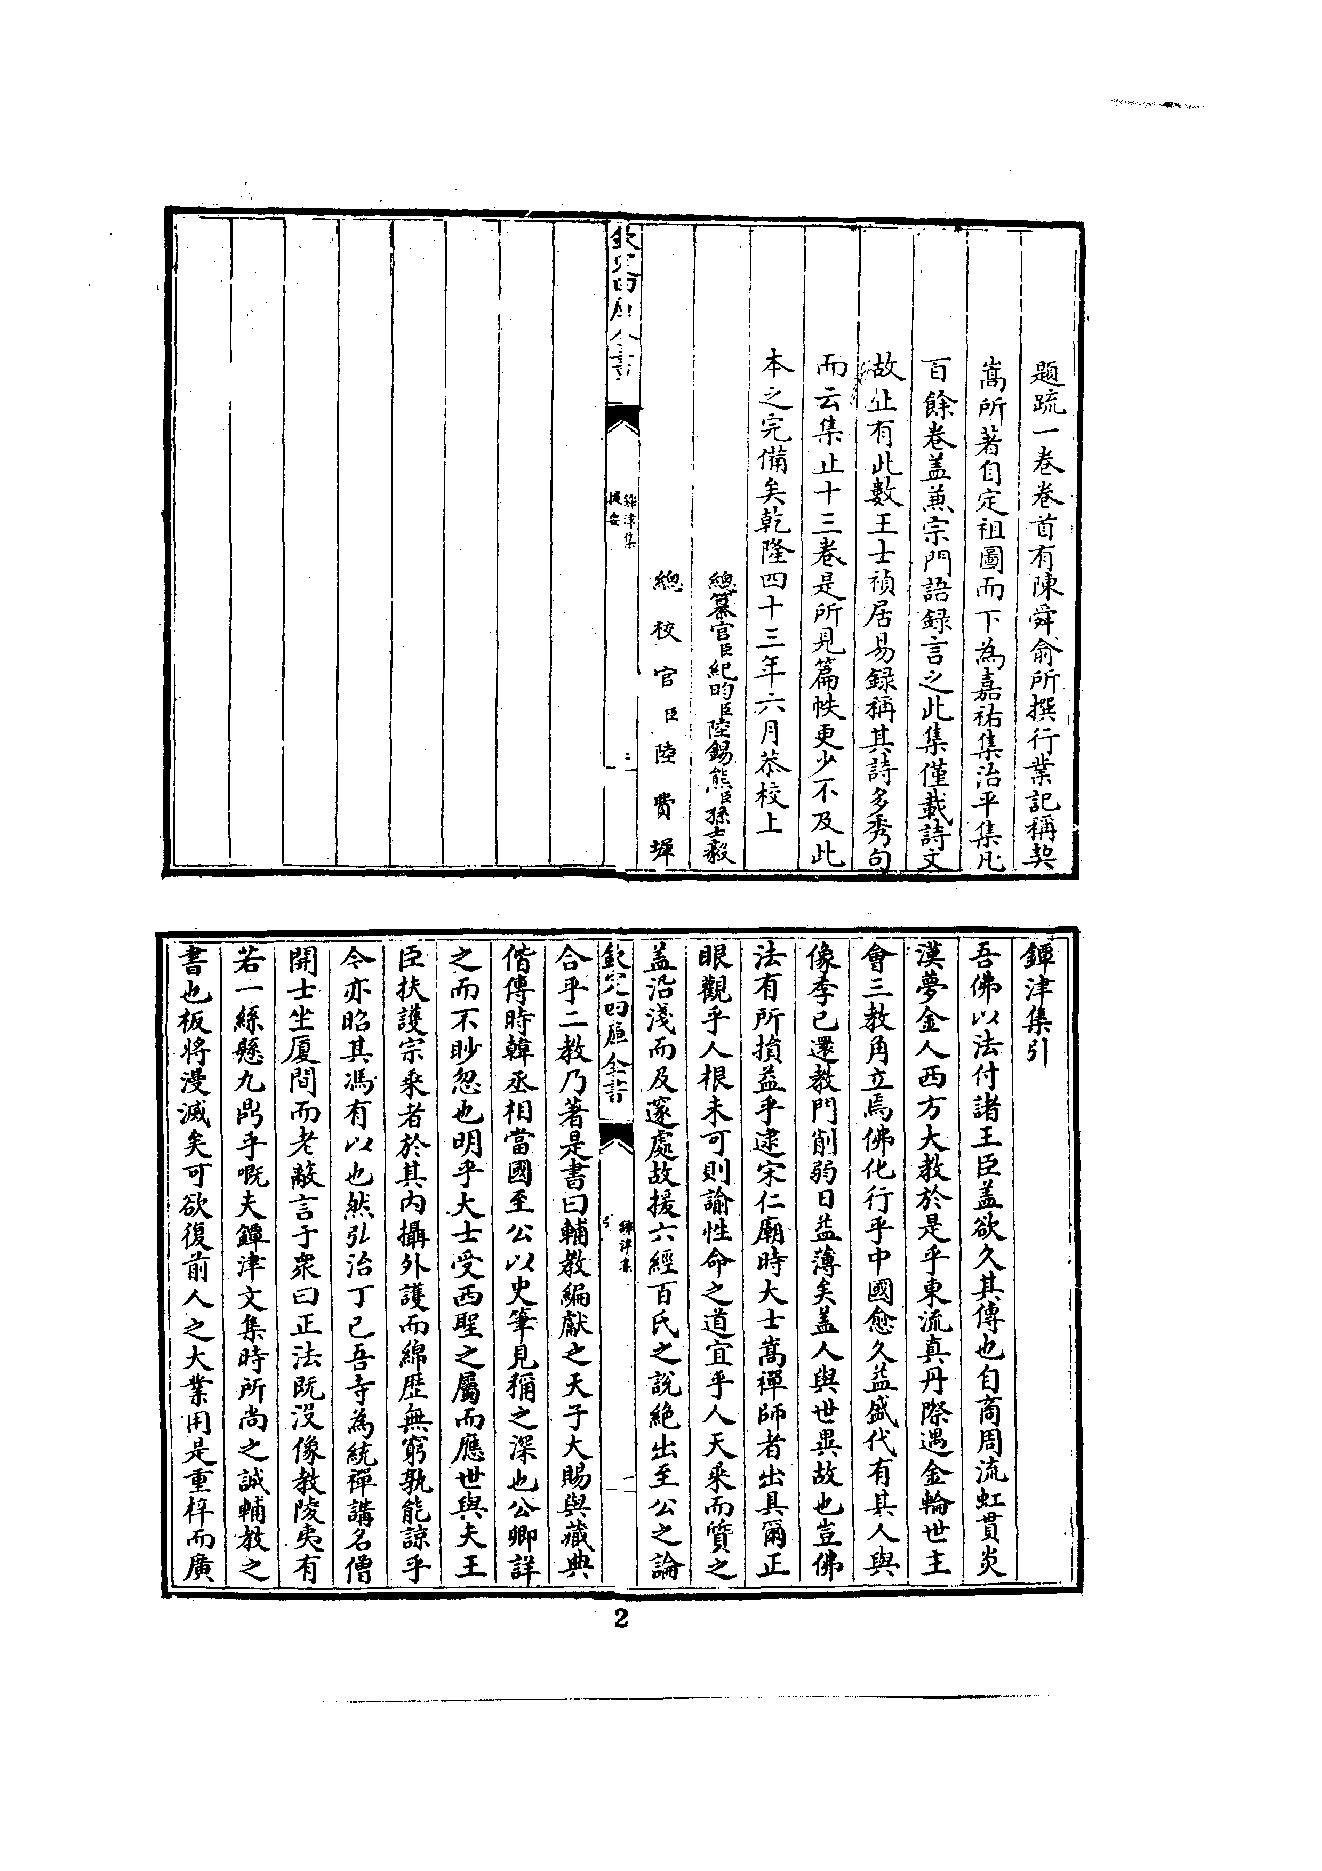 題疏一卷卷首有陳舜俞所撰行業記稱契
嵩所著自定祖圖而下為嘉祐集治平集凡
百餘卷盖兼宗門語録言之此集僅載詩文
故止有此數王士禎居易録稱其詩多秀句
而云集止十三卷是所見篇帙更少不及此
本之完備矣乾隆四十三年六月恭校上
總纂官臣紀昀臣陸錫熊臣孫士毅
總校官臣陸費墀
欽定四庫全書
鐔津集
提要
二
鐔津集引
吾佛以法付諸王臣盖欲久其傳也自商周流虹貫炎
漢夢金人西方大教於是乎東流真丹際遇金輪世主
會三教角立焉佛化行乎中國愈久益盛代有其人與
像季已還教門削弱日益薄矣盖人與世異故也豈佛
法有所損益乎逮宋仁廟時大士嵩禪師者出具爾正
眼觀乎人根未可則諭性命之道宜乎人天乘而質之
盖沿淺而及邃處故援六經百氏之說絶出至公之論
欽定四庫全書
鐔津集
引
一
合乎二教乃著是書曰輔教編獻之天子大賜與藏典
偕傳時韓丞相當國至公以史筆見稱之深也公卿詳
之而不眇忽也明乎大士受西聖之屬而應世與夫王
臣扶護宗乘者於其内攝外護而綿歴無窮孰能諒乎
今亦昭其馮有以也然弘治丁已吾寺為統禪講名僧
開士坐厦間而老蔽言于衆曰正法既没像教陵夷有
若一絲懸九鼎乎嘅夫鐔津文集時所尚之誠輔教之
書也板將漫滅矣可欲復前人之大業用是重梓而廣
2